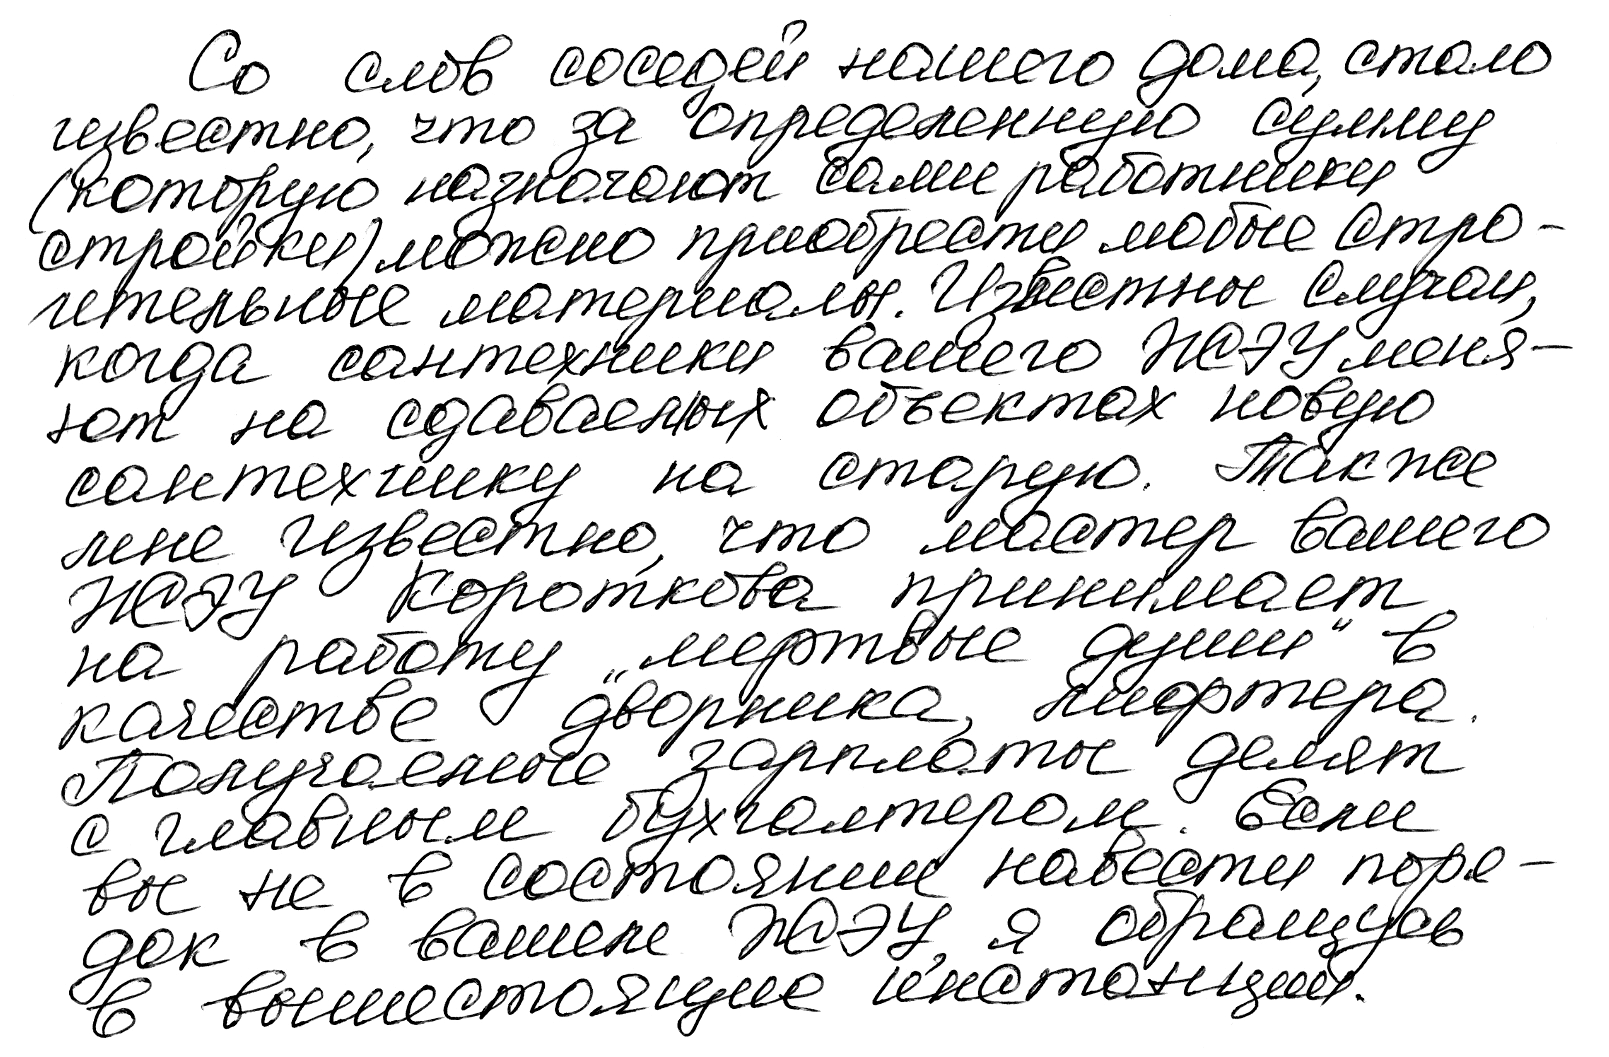 Со слов соседей нашего дома, стало
известно, что за определенную сумму
(которую назначают сами работники
стройки) можно приобрести любые стро-
ительные материалы. Известны случаи,
когда сантехники вашего ЖЭУ меня-
ют на сдаваемых объектах новую
сантехнику на старую. Также
мне известно, что мастер вашего
ЖЭУ Короткова принимает
на работу „мертвые души" в
качестве дворника, лифтера.
Получаемые зарплаты делят
с главным бухгалтером. Если
вы не в состоянии навести поря-
док в вашем ЖЭУ, я обращусь
в вышестоящие инстанции.